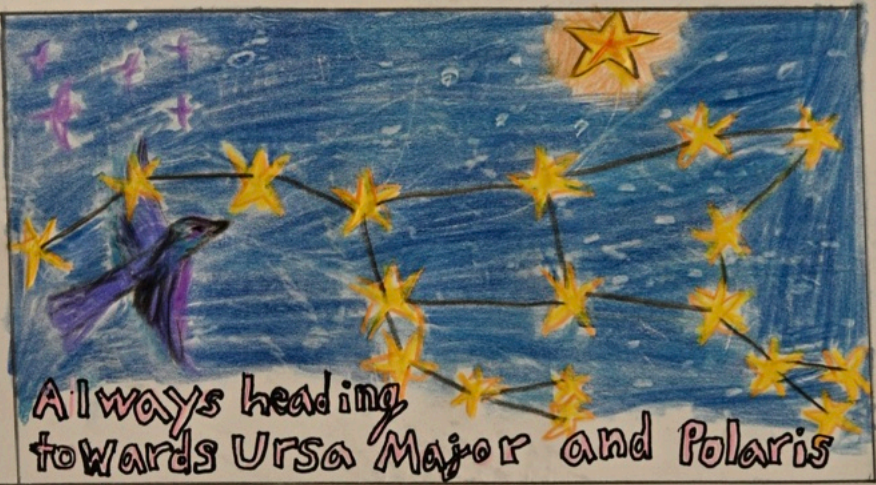 Always heading
towards Ursa Major and Polaris